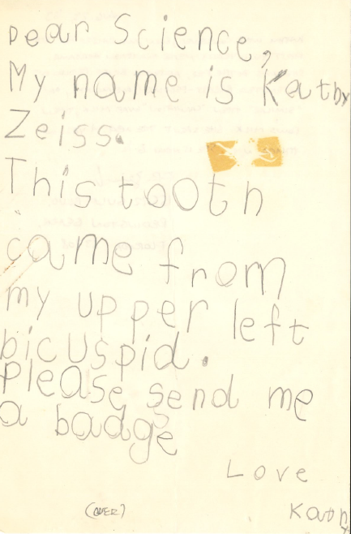 Dear Science,
My name is Kathy
Zeiss.
This tooth
came from
my upper left
bicuspid.
Please send me
a badge
Love
Kathy
(OVER)